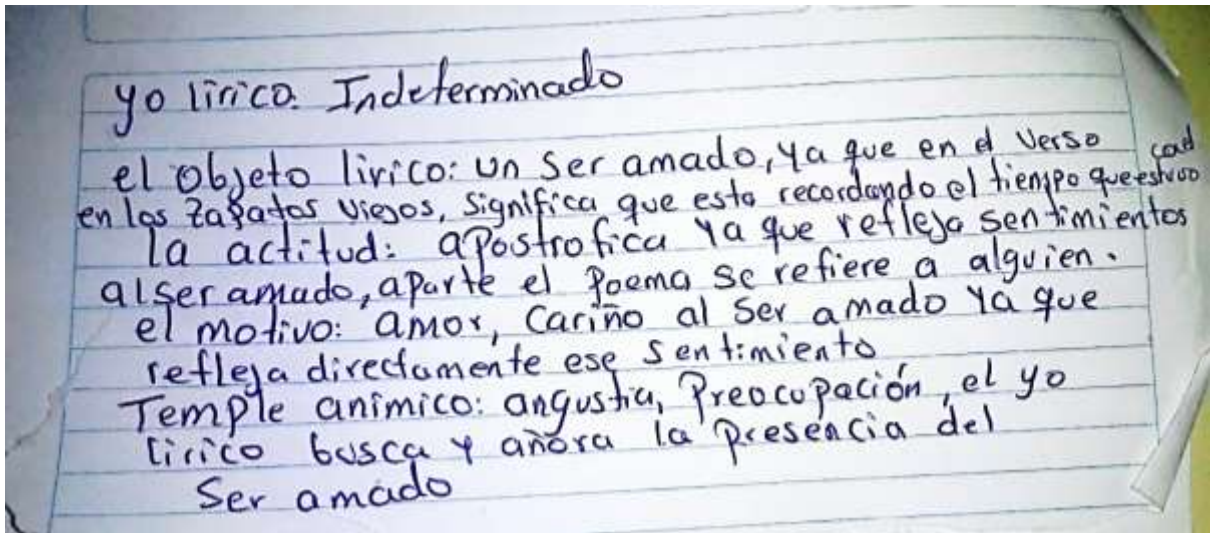 yo lirico. Indeterminado
el objeto lirico: un ser amado, ya que en el verso
en los zapatos viejos, significa que esta recordando el tiempo que estuvo cad
la actitud: apostrofica ya que refleja sentimientos
al ser amado, aparte el poema se refiere a alguien.
el motivo: amor, cariño al ser amado ya que
refleja directamente ese sentimiento
Temple animico: angustia, preocupación, el yo
lirico busca y añora la presencia del
ser amado